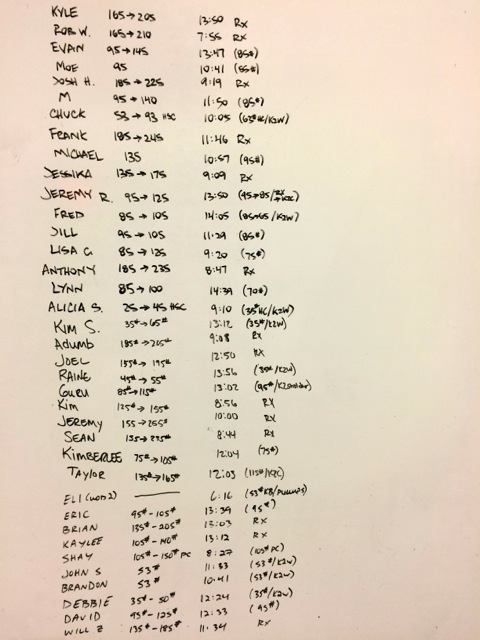 KYLE 165→205 13:50 Rx
ROB W. 165→210 7:55 Rx
EVAN 95→145 13:47 (85#)
MOE 95 10:41 (55#)
JOSH H. 185→225 9:19 Rx
M 95→140 11:50 (85#)
CHUCK 53→93 HSC 10:05 (63#HC/K2W)
FRANK 185→245 11:46 Rx
MICHAEL 135 10:57 (95#)
JESSIKA 135→175 9:09 Rx
JEREMY R. 95→125 13:50
FRED 85→105 14:05 (85→65/K2W)
JILL 95→105 11:29 (85#)
LISA C. 85→125 9:20 (75#)
ANTHONY 185→235 8:47 Rx
LYNN 85→100 14:39 (70#)
ALICIA S. 25→45 HSC 9:10 (35#HC/K2W)
KIM S. 35#→65# 13:12 (35#/K2W)
Adumb 185#→205# 9:08 Rx
JOEL 155#→195# 12:50 RX
RAINE 45#→55# 13:56 (35#/K2W)
GURU 85#→115# 13:02
Kim 125#→155# 8:56 RX
JEREMY 155→255# 10:00 RX
SEAN 8:44 RX
KIMBERLEE 75#→105# 12:04 (75#)
TAYLOR 135#→165# 12:03 (115#/K2C)
ELI (WOD 2) 6:16
ERIC 95#-105# 13:39 (95#)
BRIAN 135#-205# 13:03 RX
KAYLEE 105#-140# 13:12 RX
SHAY 105#-150# PC 8:27 (105# PC)
JOHN S 53# 11:33 (53#/K2W)
BRANDON 53# 10:41 (53#/K2W)
DEBBIE 35#-50# 12:24 (35#/K2W)
DAVID 95#-125# 12:33 (95#)
WILL Z 135#-185# 11:34 RX